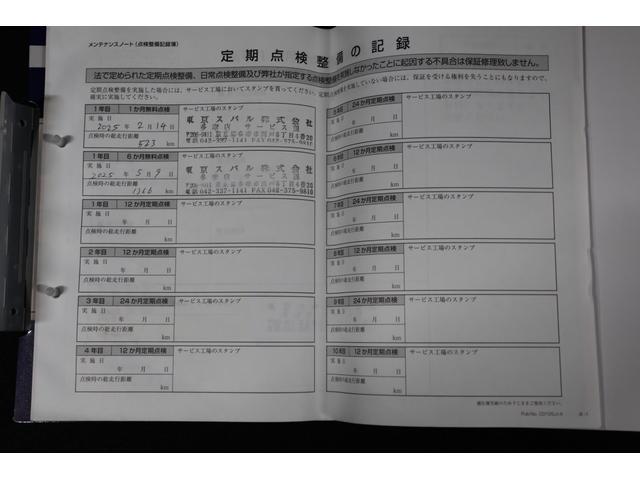 メンテナンスノート(点検整備記録簿)
定期点検整備の記録
法で定められた定期点検整備、日常点検整備及び弊社が指定する点検整備を実施しなかったことに起因する不具合は保証修理致しません。
定期点検整備を実施した場合には、サービス工場においてスタンプを貰ってください。定期点検整備を実施していない場合には、保証を受ける権利を失うこともなりますので、
確実に実施してください。
1年目 1か月無料点検 サービス工場のスタンプ
実施日
2025年 2月 14日
点検時の総走行距離
523 km
東京スバル株式会社
多摩店 サービス課
042-337-1141 FAX
1年目 6か月無料点検 サービス工場のスタンプ
実施日
2025年 5月 9日
点検時の総走行距離
1366 km
東京スバル株式会社
多摩店 サービス課
042-337-1141 FAX 042-375-9810
1年目 12か月定期点検 サービス工場のスタンプ
実施日
年 月 日
点検時の総走行距離
km
2年目 12か月定期点検 サービス工場のスタンプ
実施日
年 月 日
点検時の総走行距離
km
3年目 24か月定期点検 サービス工場のスタンプ
実施日
年 月 日
点検時の総走行距離
km
4年目 12か月定期点検 サービス工場のスタンプ
実施日
年 月 日
点検時の総走行距離
km
5年目 24か月定期点検 サービス工場のスタンプ
実施日
年 月 日
点検時の総走行距離
km
6年目 12か月定期点検 サービス工場のスタンプ
実施日
年 月 日
点検時の総走行距離
km
7年目 24か月定期点検 サービス工場のスタンプ
実施日
年 月 日
点検時の総走行距離
km
8年目 12か月定期点検 サービス工場のスタンプ
実施日
年 月 日
点検時の総走行距離
km
9年目 24か月定期点検 サービス工場のスタンプ
実施日
年 月 日
点検時の総走行距離
km
10年目 12か月定期点検 サービス工場のスタンプ
実施日
年 月 日
点検時の総走行距離
km